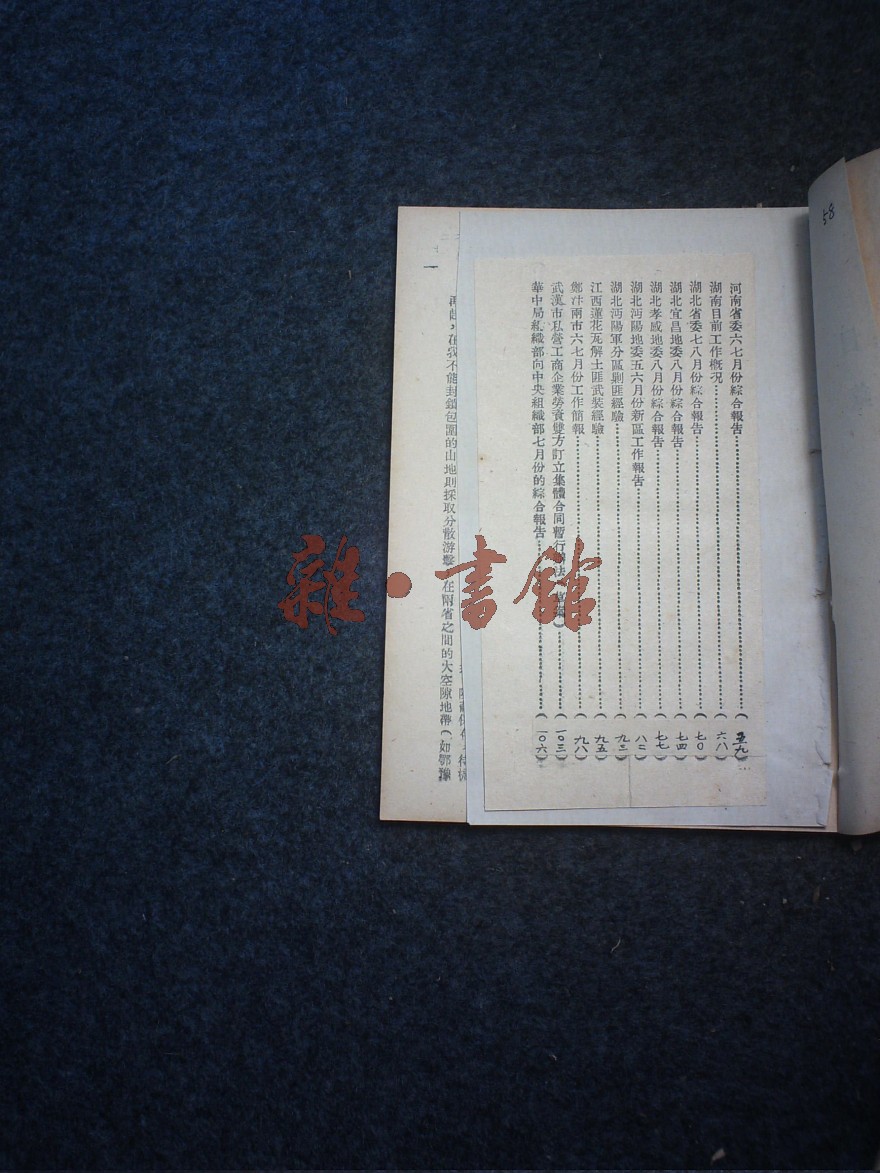 58
河南省委六七月份綜合報告…………(五九)
湖南目前工作概况…………(六八)
湖北省委七八月份綜合報告…………(七〇)
湖北宜昌地委八月份綜合報告…………(七四)
湖北孝感地委八月份綜合報告…………(七七)
湖北沔陽地委五六月份新區工作報告…………(八二)
湖北沔陽軍分區剿匪經驗…………(九二)
江西蓮花瓦解土匪武裝經驗…………(九五)
鄭汴兩市六七月份工作簡報…………(九八)
武漢市私營工商企業勞資雙方訂立集體合同暫行…………(一〇三)
華中局組織部向中央組織部七月份的綜合報告…………(一〇六)
再起,在我不能封鎖包圍的山地則採取分散游擊,在兩省之間的大空隙地帶(如鄂豫
一
雜·書館